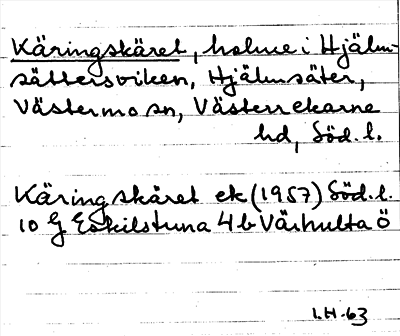 Käringskäret, holme i Hjälm-
sättersviken, Hjälmsäter,
Västermo sn, Västerrekarne
hd, Söd. l.
Käringskäret ek (1957) Söd. l.
10 G Eskilstuna 4 b Värhulta ö
I.H-63